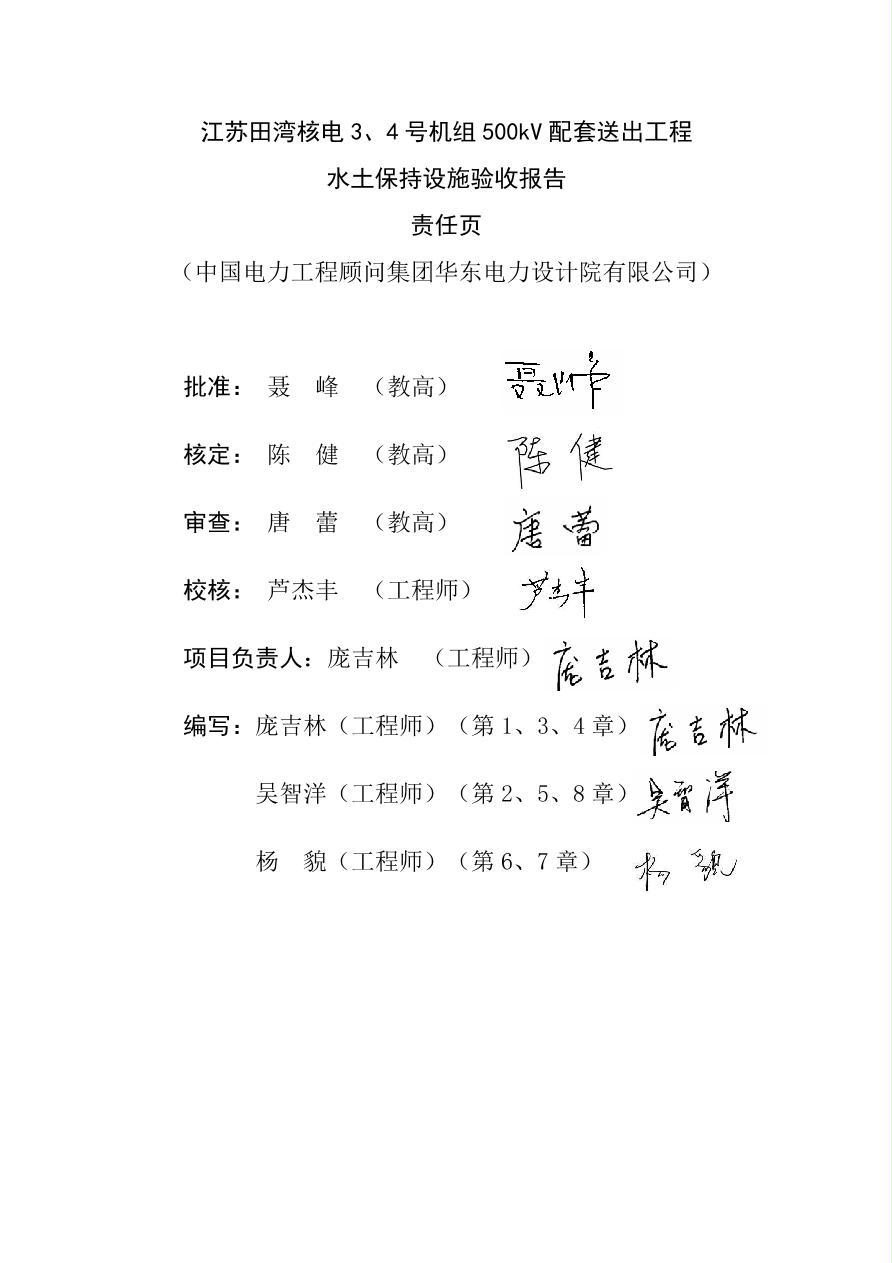 江苏田湾核电 3、4 号机组 500kV 配套送出工程
水土保持设施验收报告
责任页
（中国电力工程顾问集团华东电力设计院有限公司）
批准： 聂 峰 （教高） 聂峰
核定： 陈 健 （教高） 陈健
审查： 唐 蕾 （教高） 唐蕾
校核： 芦杰丰 （工程师） 芦杰丰
项目负责人：庞吉林 （工程师） 庞吉林
编写：庞吉林（工程师）（第 1、3、4 章） 庞吉林
吴智洋（工程师）（第 2、5、8 章） 吴智洋
杨 貌（工程师）（第 6、7 章） 杨貌